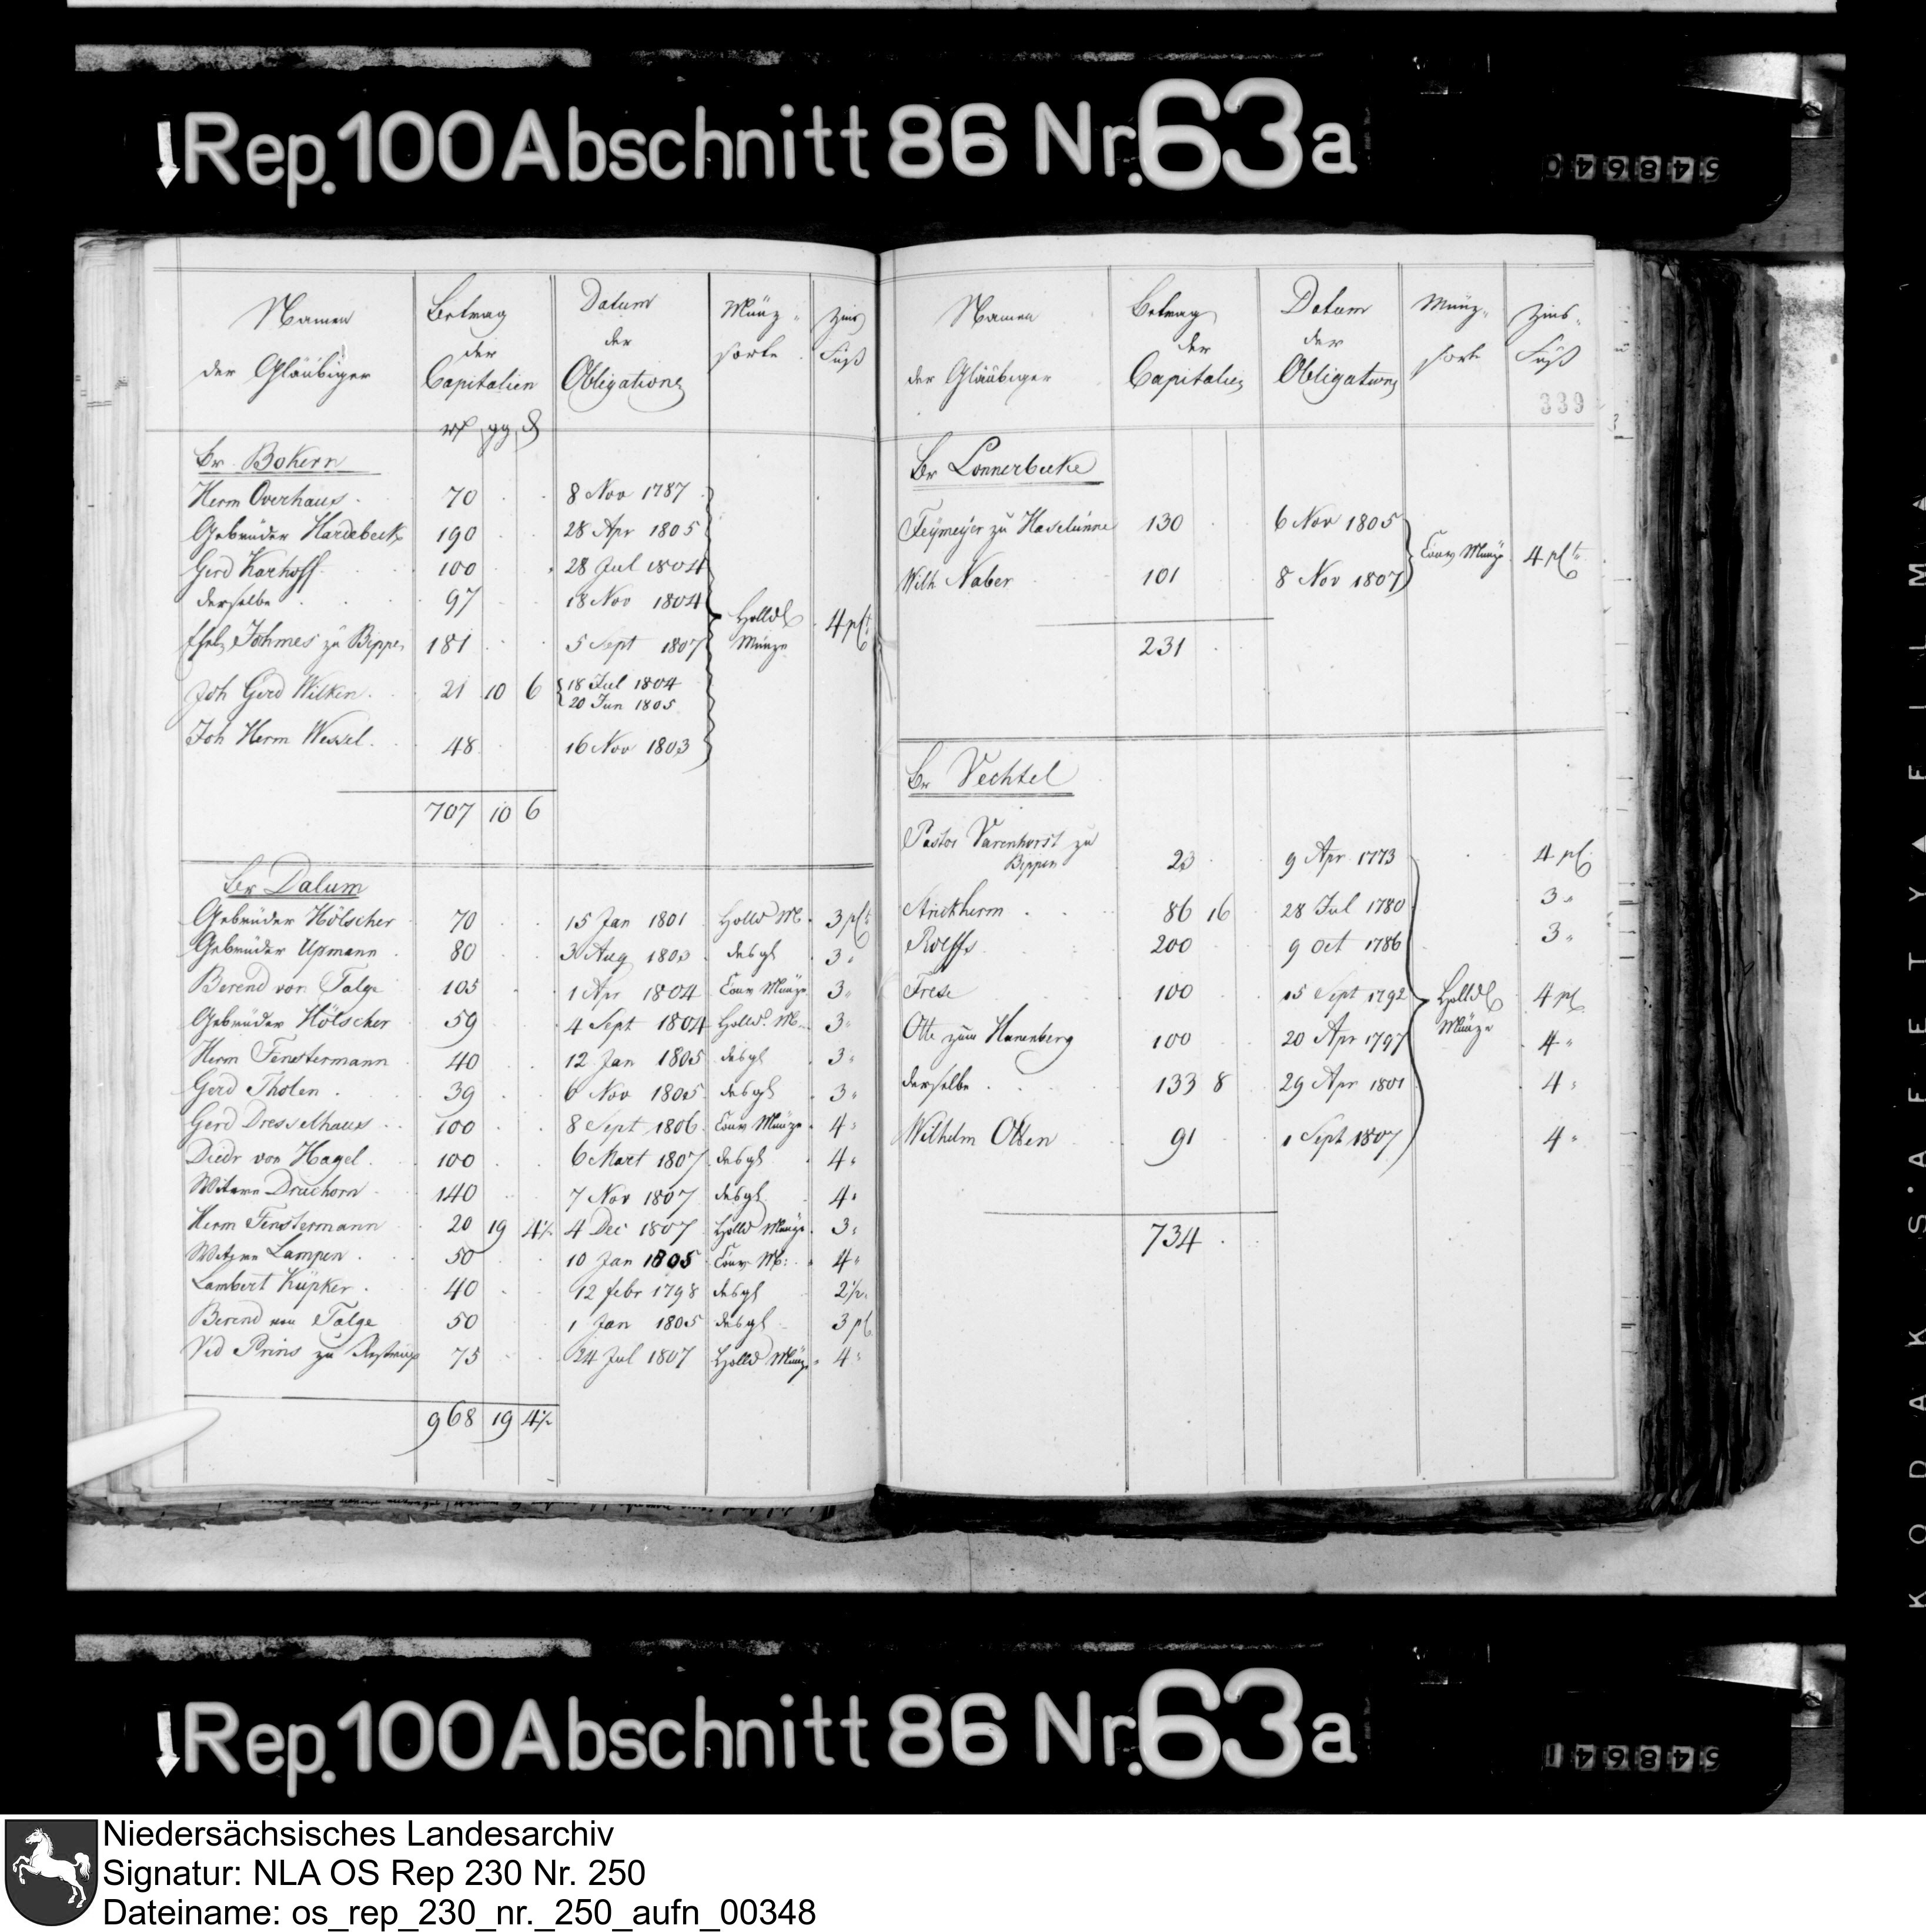 Rep. 100 Abschnitt 86 Nr. 63a
548640
Namen der Gläubiger Betrag der Capitalien Datum der Obligationen Münz-sorte Zins Fuß
rt gg d
Br. Bokern
Herm Overhaus 70 8 Nov 1787
Gebrüder Hardebeck 190 28 Apr 1805
Gerd Karhoff 100 28 Jul 1804
derselbe 97 18 Nov 1804
Johmes zu Bippen 181 5 Sept 1807
Holld Münze 4 pCt
Joh Gerd Wilken 21 10 6 18 Jul 1804
20 Jun 1805
Joh Herm Wessel 48 16 Nov 1803
707 10 6
Br Dalum
Gebrüder Hölscher 70 15 Jan 1801 Holld M. 3 pCt
Gebrüder Upmann 80 3 Aug 1803 desgl 3
Berend von Talge 105 1 Apr 1804 Conv Münze 3
Gebrüder Hölscher 59 4 Sept 1804 Holld. M. 3
Herm Fenstermann 40 12 Jan 1805 desgl 3
Gerd Tholen 39 6 Nov 1805 desgl 3
Gerd Dresselhaus 100 8 Sept 1806 Conv Münze 4
Diedr von Hagel 100 6 Mart 1807 desgl 4
Witwe Druchorn 140 7 Nov 1807 desgl 4
Herm Fenstermann 20 19 4½ 4 Dec 1807 Holld Münze 3
Witwe Lampen 50 10 Jan 1805 Conv M: 4
Lambert Küpker 40 12 febr 1798 desgl 2½
Berend von Talge 50 1 Jan 1805 desgl 3 pC
Prins zu Restrup 75 24 Jul 1807 Holld Münze 4
968 19 4½
Namen der Gläubiger Betrag der Capitalien Datum der Obligationen Münz-sorte Zins-Fuß
339
Br Lonnerbecke
Feymeyer zu Haselünne 130 6 Nov 1805
Conv Münze 4 pCt
Wilh Naber 101 8 Nov 1807
231
Br Vechtel
Pastor Varenhorst zu
Bippen 23 9 Apr 1773 4 pC
Strickherm 86 16 28 Jul 1780 3
Rolffs 200 9 Oct 1786 3
Frese 100 15 Sept 1792 4 pC
Holld Münze
Otte zum Hanenberg 100 20 Apr 1797 4
derselbe 133 8 29 Apr 1801 4
Wilhelm Otten 91 1 Sept 1807 4
734
KODAK S.A.F.E.T.Y. FILM
Rep. 100 Abschnitt 86 Nr. 63a
548641
Niedersächsisches Landesarchiv
Signatur: NLA OS Rep 230 Nr. 250
Dateiname: os_rep_230_nr._250_aufn_00348